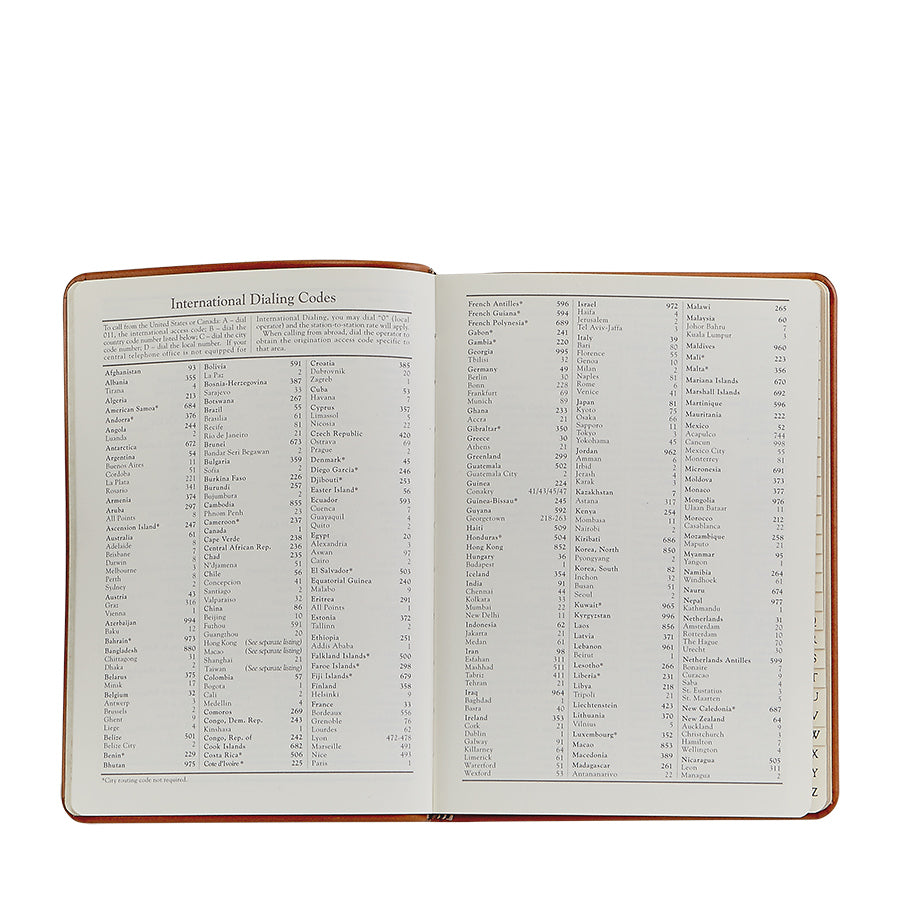 International Dialing Codes
To call from the United States or Canada: A – dial
011, the international access code; B – dial the
country code number listed below; C – dial the city
code number; D – dial the local number. If your
central telephone office is not equipped for
International Dialing, you may dial "0" (local
operator) and the station-to-station rate will apply.
When calling from abroad, dial the operator to
obtain the origination access code specific to
that area.
Afghanistan 93
Albania 355
Tirana 4
Algeria 213
American Samoa* 684
Andorra* 376
Angola 244
Luanda 2
Antarctica 672
Argentina 54
Buenos Aires 11
Cordoba 51
La Plata 221
Rosario 341
Armenia 374
Aruba 297
All Points 8
Ascension Island* 247
Australia 61
Adelaide 8
Brisbane 7
Darwin 8
Melbourne 3
Perth 8
Sydney 2
Austria 43
Graz 316
Vienna 1
Azerbaijan 994
Baku 12
Bahrain* 973
Bangladesh 880
Chittagong 31
Dhaka 2
Belarus 375
Minsk 17
Belgium 32
Antwerp 3
Brussels 2
Ghent 9
Liege 4
Belize 501
Belize City 2
Benin* 229
Bhutan 975
Bolivia 591
La Paz 2
Bosnia-Herzegovina 387
Sarajevo 33
Botswana 267
Brazil 55
Brasilia 61
Recife 81
Rio de Janeiro 21
Brunei 673
Bandar Seri Begawan 2
Bulgaria 359
Sofia 2
Burkina Faso 226
Burundi 257
Bujumbura 2
Cambodia 855
Phnom Penh 23
Cameroon* 237
Canada 1
Cape Verde 238
Central African Rep. 236
Chad 235
N'Djamena 51
Chile 56
Concepcion 41
Santiago 2
Valparaiso 32
China 86
Beijing 10
Fuzhou 591
Guangzhou 20
Hong Kong (See separate listing)
Macao (See separate listing)
Shanghai 21
Taiwan (See separate listing)
Colombia 57
Bogota 1
Cali 2
Medellin 4
Comoros 269
Congo, Dem. Rep. 243
Kinshasa 1
Congo, Rep. of 242
Cook Islands 682
Costa Rica* 506
Cote d'Ivoire * 225
Croatia 385
Dubrovnik 20
Zagreb 1
Cuba 53
Havana 7
Cyprus 357
Limassol 5
Nicosia 22
Czech Republic 420
Ostrava 69
Prague 2
Denmark* 45
Diego Garcia* 246
Djibouti* 253
Easter Island* 56
Ecuador 593
Cuenca 7
Guayaquil 4
Quito 2
Egypt 20
Alexandria 3
Aswan 97
Cairo 2
El Salvador* 503
Equatorial Guinea 240
Malabo 9
Eritrea 291
All Points 1
Estonia 372
Tallinn 2
Ethiopia 251
Addis Ababa 1
Falkland Islands* 500
Faroe Islands* 298
Fiji Islands* 679
Finland 358
Helsinki 9
France 33
Bordeaux 556
Grenoble 76
Lourdes 62
Lyon 472-478
Marseille 491
Nice 493
Paris 1
*City routing code not required.
French Antilles* 596
French Guiana* 594
French Polynesia* 689
Gabon* 241
Gambia* 220
Georgia 995
Tbilisi 32
Germany 49
Berlin 30
Bonn 228
Frankfurt 69
Munich 89
Ghana 233
Accra 21
Gibraltar* 350
Greece 30
Athens 21
Greenland 299
Guatemala 502
Guatemala City 2
Guinea 224
Conakry 41/43/45/47
Guinea-Bissau* 245
Guyana 592
Georgetown 218-263
Haiti 509
Honduras* 504
Hong Kong 852
Hungary 36
Budapest 1
Iceland 354
India 91
Chennai 44
Kolkata 33
Mumbai 22
New Delhi 11
Indonesia 62
Jakarta 21
Medan 61
Iran 98
Esfahan 311
Mashhad 511
Tabriz 411
Tehran 21
Iraq 964
Baghdad 1
Basra 40
Ireland 353
Cork 21
Dublin 1
Galway 91
Killarney 64
Limerick 61
Waterford 51
Wexford 53
Israel 972
Haifa 4
Jerusalem 2
Tel Aviv-Jaffa 3
Italy 39
Bari 80
Florence 55
Genoa 10
Milan 2
Naples 81
Rome 6
Venice 41
Japan 81
Kyoto 75
Osaka 66
Sapporo 11
Tokyo 3
Yokohama 45
Jordan 962
Amman 6
Irbid 2
Jerash 4
Karak 3
Kazakhstan 7
Astana 317
Kenya 254
Mombasa 11
Nairobi 2
Kiribati 686
Korea, North 850
Pyongyang 2
Korea, South 82
Inchon 32
Busan 51
Seoul 2
Kuwait* 965
Kyrgyzstan 996
Laos 856
Latvia 371
Lebanon 961
Beirut 1
Lesotho* 266
Liberia* 231
Libya 218
Tripoli 21
Liechtenstein 423
Lithuania 370
Vilnius 5
Luxembourg* 352
Macao 853
Macedonia 389
Madagascar 261
Antananarivo 22
Malawi 265
Malaysia 60
Johor Bahru 7
Kuala Lumpur 3
Maldives 960
Mali* 223
Malta* 356
Mariana Islands 670
Marshall Islands 692
Martinique 596
Mauritania 222
Mexico 52
Acapulco 744
Cancun 998
Mexico City 55
Monterrey 81
Micronesia 691
Moldova 373
Monaco 377
Mongolia 976
Ulaan Bataar 11
Morocco 212
Casablanca 22
Mozambique 258
Maputo 21
Myanmar 95
Yangon 1
Namibia 264
Windhoek 61
Nauru 674
Nepal 977
Kathmandu 1
Netherlands 31
Amsterdam 20
Rotterdam 10
The Hague 70
Utrecht 30
Netherlands Antilles 599
Bonaire 7
Curacao 9
Saba 4
St. Eustatius 3
St. Maarten 5
New Caledonia* 687
New Zealand 64
Auckland 9
Christchurch 3
Hamilton 7
Wellington 4
Nicaragua 505
Leon 311
Managua 2
S
T
U
V
W
X
Y
Z